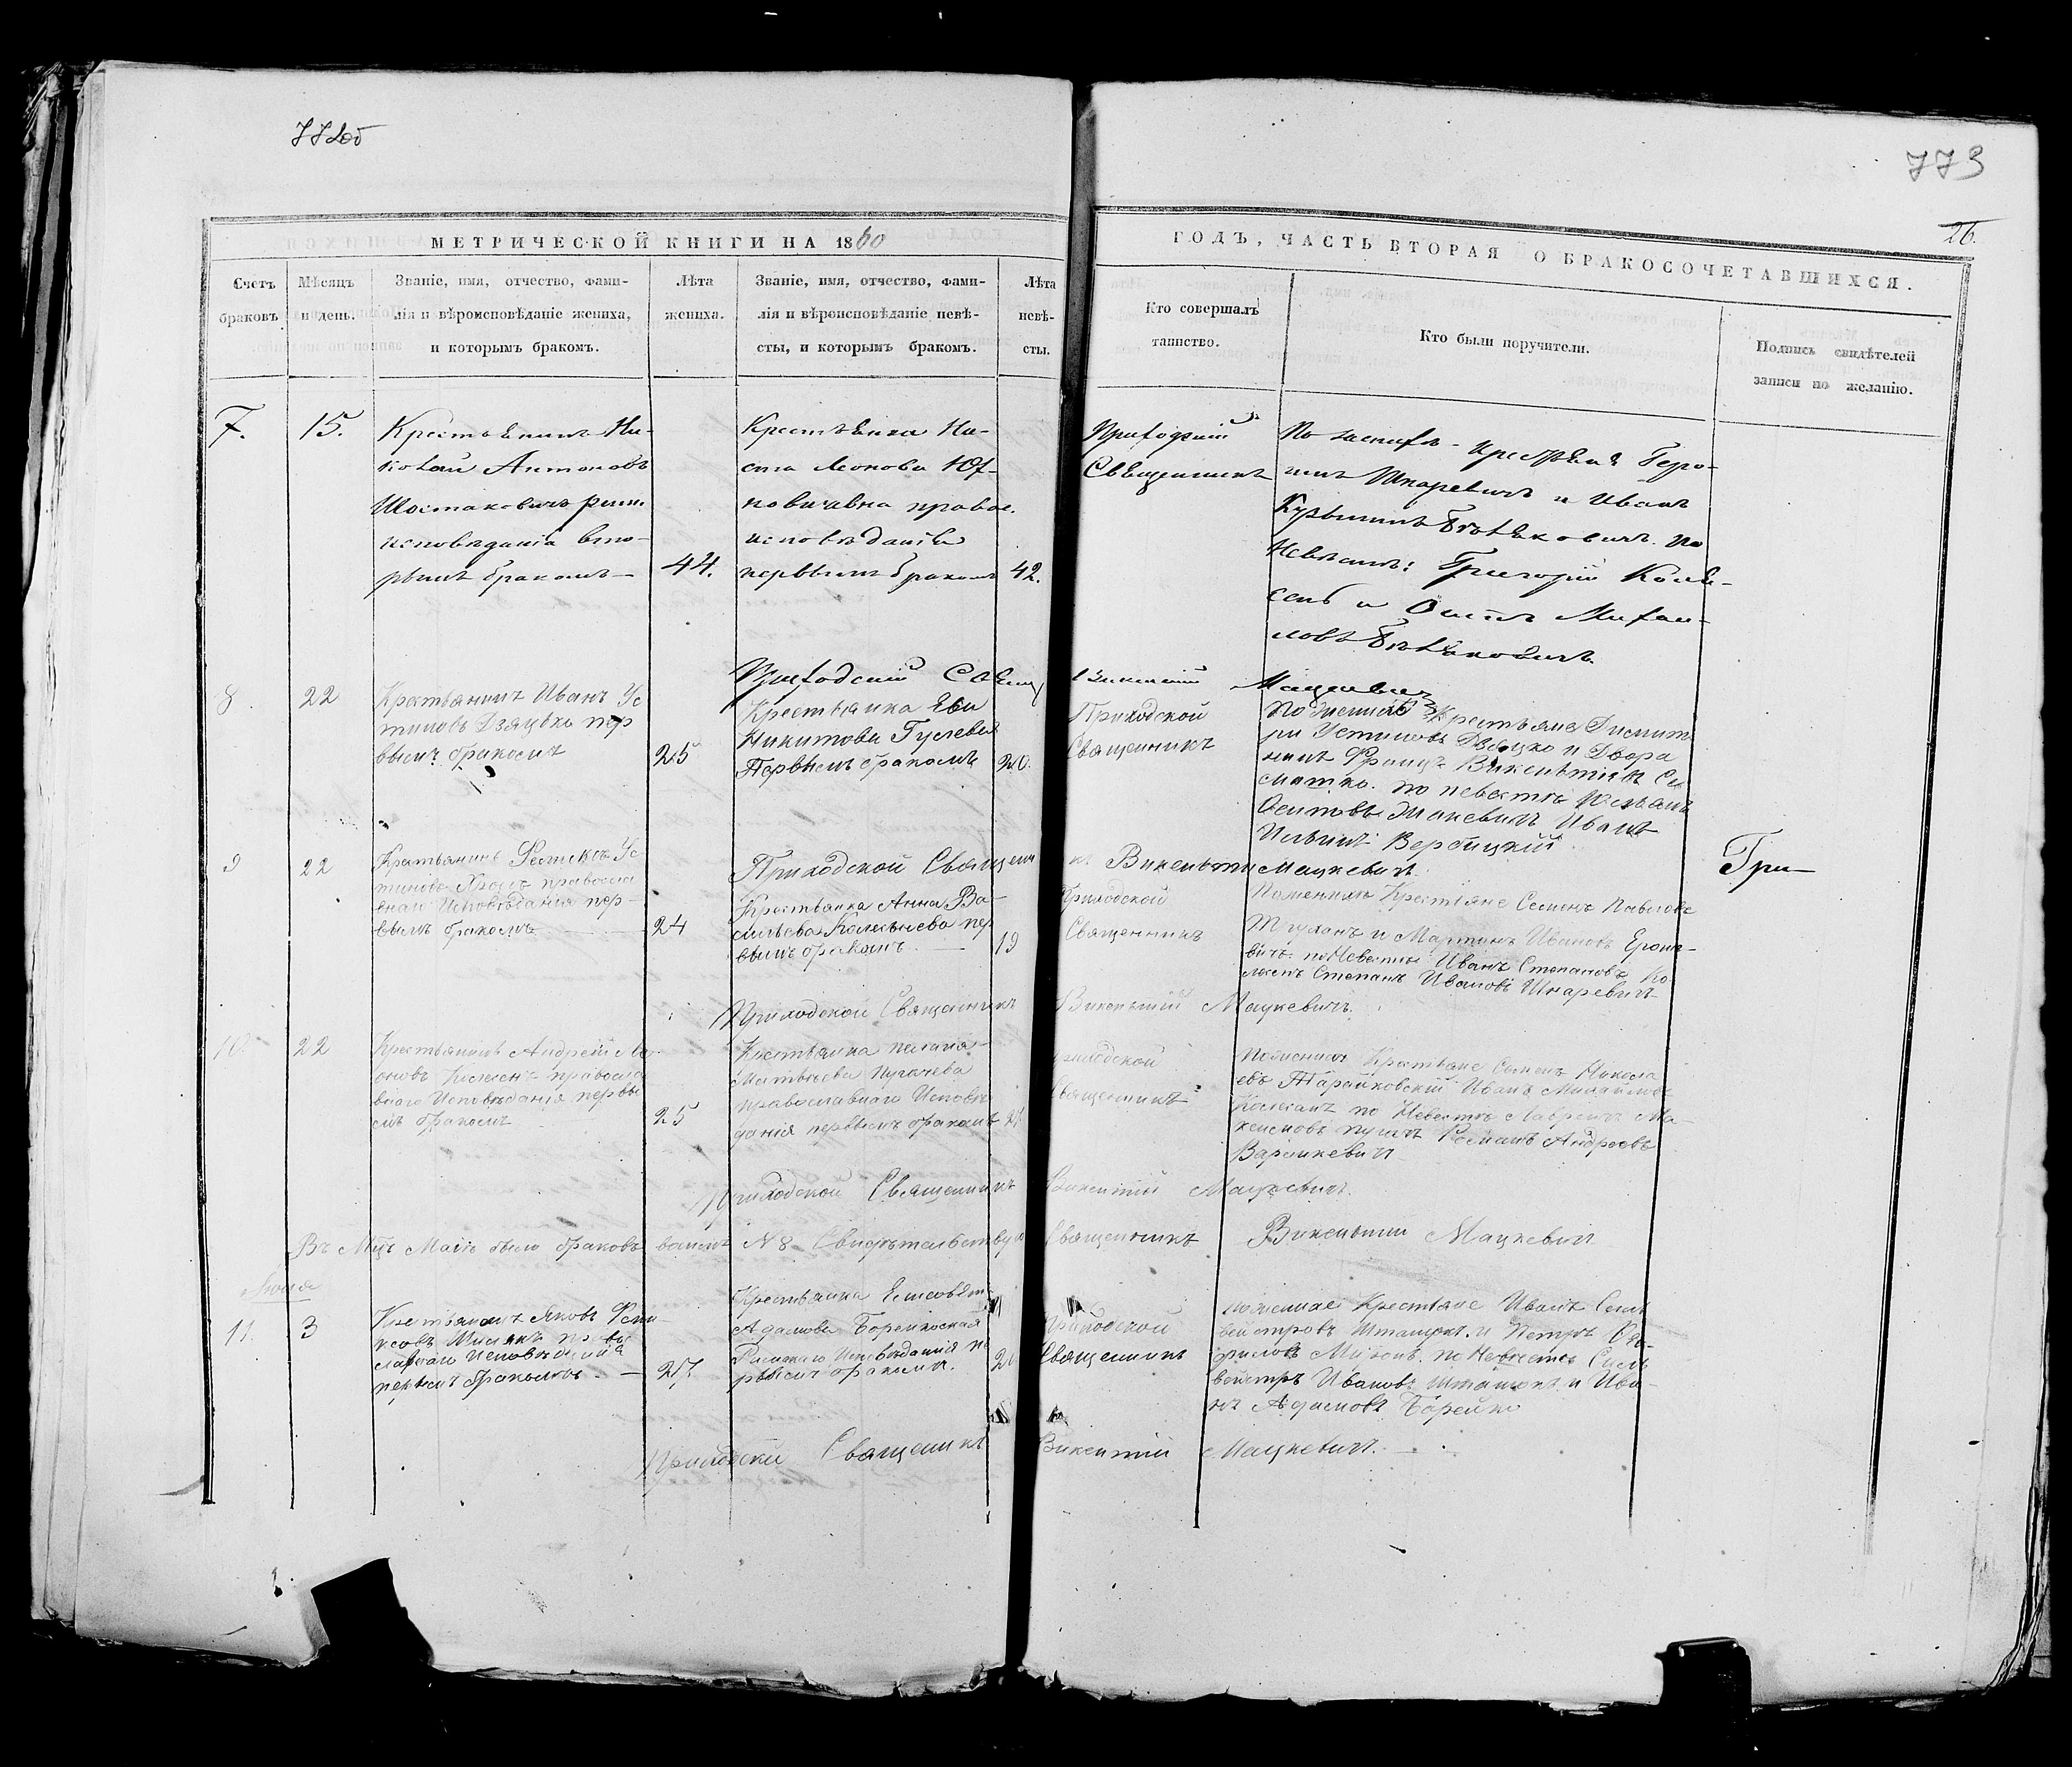 772об
773
26.
МЕТРИЧЕСКОЙ КНИГИ НА 1860
ГОДЪ, ЧАСТЬ ВТОРАЯ О БРАКОСОЧЕТАВШИХСЯ.
Счетъ браковъ
Мѣсяцъ и день.
Званіе, имя, отчество, фами-
лія и вѣроисповѣданіе жениха,
и которымъ бракомъ.
Лѣта
жениха.
Званіе, имя, отчество, фами-
лія и вѣроисповѣданіе невѣ-
сты, и которымъ бракомъ.
Лѣта
невѣ-
сты.
Кто совершалъ
таинство.
Кто были поручители.
Подпись свидѣтелей
записи по желанію.
7.
15.
Крестьянинъ Ни-
колай Антоновъ
Шостаковичъ рим.
исповѣданія вто-
рымъ бракомъ
44.
Крестьянка На-
ста Леонова Юх-
новичавна правос.
исповѣданія
первымъ бракомъ
42.
Приходскій
Священникъ
По женихѣ - крестьяне Геро-
нимъ Шкаревичъ и Иванъ
Кузьминъ Бѣляковичъ. По
Невѣстѣ: Григорій Коля-
сень и Осипъ Михаи-
ловъ Бѣляковичъ.
Приходскій Свящ Викентій Мацкевич
8
22
Крестьянинъ Иванъ Ус
тиновъ Дзяцько пер
вымъ бракомъ
25
Крестьянка Ева
Никитова Гуслевая
Первымъ бракомъ
20.
Приходской
Священникъ
По женихѣ Крестьяне Димит
ри Устиновъ Дзяцко и Двора
нинъ Францъ Викентіевъ Си
матко. по невестѣ
Осиповъ Жакевичъ Иванъ
Ильинъ Версоцкій
Приходской Священникъ Викентій Мацкевичъ
Гри-
9
22
Крестьянинъ Феликсъ Ус
тиновъ правосла
внаго Исповѣданія пер-
вымъ бракомъ
24
Крестьянка Анна Ва-
сильева Колеснева пер
вымъ бракомъ
19
Приходской
Священникъ
Поженихѣ Крестьяне Семенъ Павловъ
и Мартинъ Ивановъ
вичъ. по Невестѣ Иванъ Степановъ Ко
лясень Степанъ Ивановъ Шкаревичъ
Приходской Священникъ Викентій Мацкевичъ.
10.
22
Крестьянинъ Андрей Ле-
оновъ правосла
внаго Исповѣданія первы
мъ бракомъ
25
Крестьянка пелагія
Матвѣева Пугачева
православнаго Исповѣ
данія первымъ бракомъ
Приходской
Священникъ
Поженихѣ Крестьяне Семенъ Никола
евъ Тарайковскій Иванъ Михайловъ
по Невестѣ Лавренъ Ма-
ксимовъ Романъ Андреевъ
Варинкевичъ
Приходской Священникъ Викентій Мацкевичъ.
Въ Мцѣ Маіѣ было браковъ N 8 Свидѣтельствую Священникъ Викентій Мацкевич
Іюня
11.
3
Крестьянинъ Яковъ
православнаго Исповѣданія
первымъ бракомъ.
27.
Крестьянка Елисовета
Адамова Борейковская
Римскаго Исповѣданія пе
рвымъ бракомъ.
Приходской
Священникъ
поженихе Крестьяне Иванъ Силь
вестровъ и Петръ
по Невестѣ Силь
вестръ Ивановъ и Ива-
нъ Адамовъ Борейко
Приходски Священикъ Викентій Мацкевичъ.